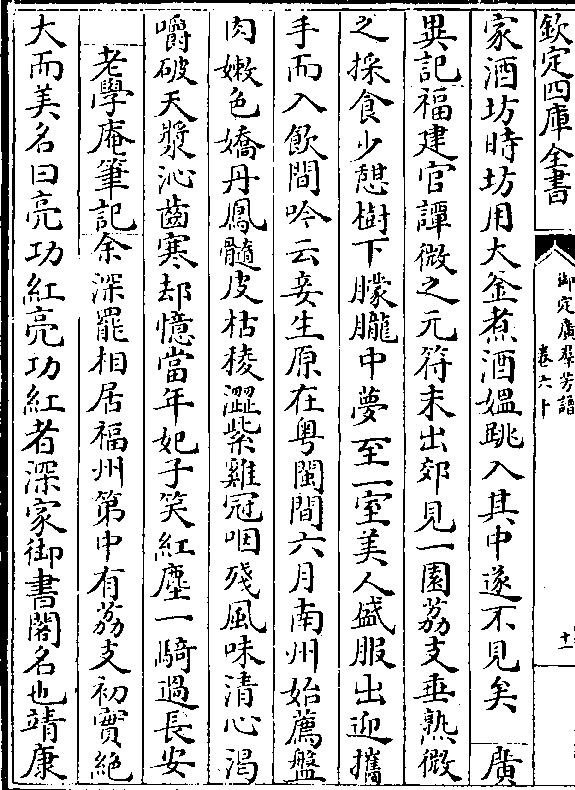 欽定四庫全書
御定廣羣芳譜
卷六十
十一
家酒坊時坊用大釜煮酒媪跳入其中遂不見矣　廣
異記福建官譚微之元符末出郊見一園荔支垂熟微
之採食少憩樹下朦朧中夢至一室美人盛服出迎攜
手而入飲間吟云妾生原在粤閩間六月南州始薦盤
肉嫩色嬌丹鳳髓皮枯稜澀紫雞冠咽殘風味清心渴
嚼破天漿沁齒寒却憶當年妃子笑紅塵一騎過長安
老學庵筆記余深罷相居福州第中有荔支初實絶
大而美名曰亮功紅亮功紅者深家御書閣名也靖康